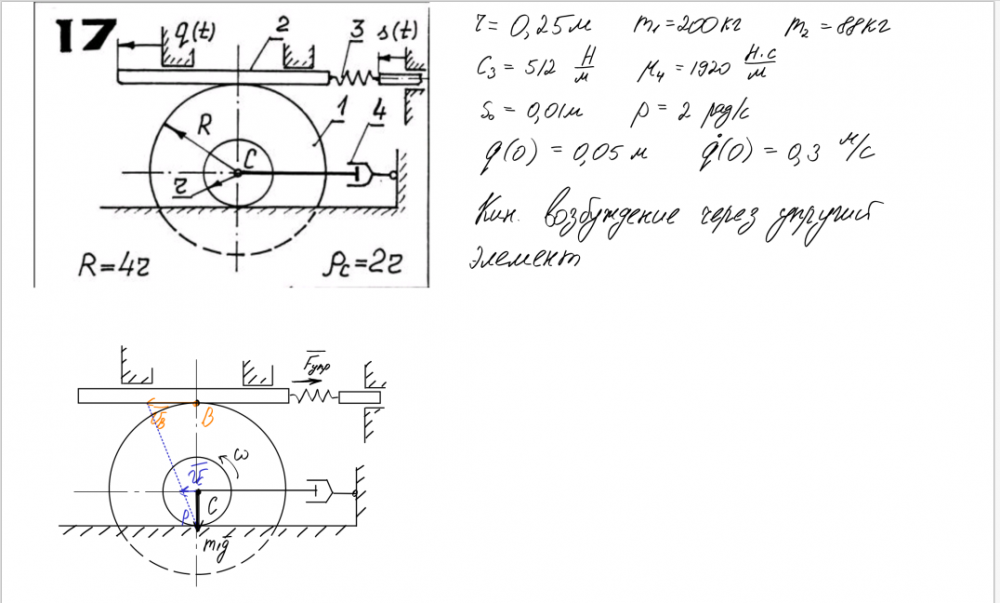 17
q(t)
2
3
s(t)
1
4
R
C
r
R=4r
ρc=2r
r = 0,25 м m₁ = 200 кг m₂ = 88 кг
C₃ = 512 Н/м μ₄ = 1920 Н·с/м
S₀ = 0,01 м p = 2 рад/с
q(0) = 0,05 м q̇(0) = 0,3 м/с
Кин. возбуждение через упругий
элемент
Fупр
VB
B
ω
VC
C
P
m₁g